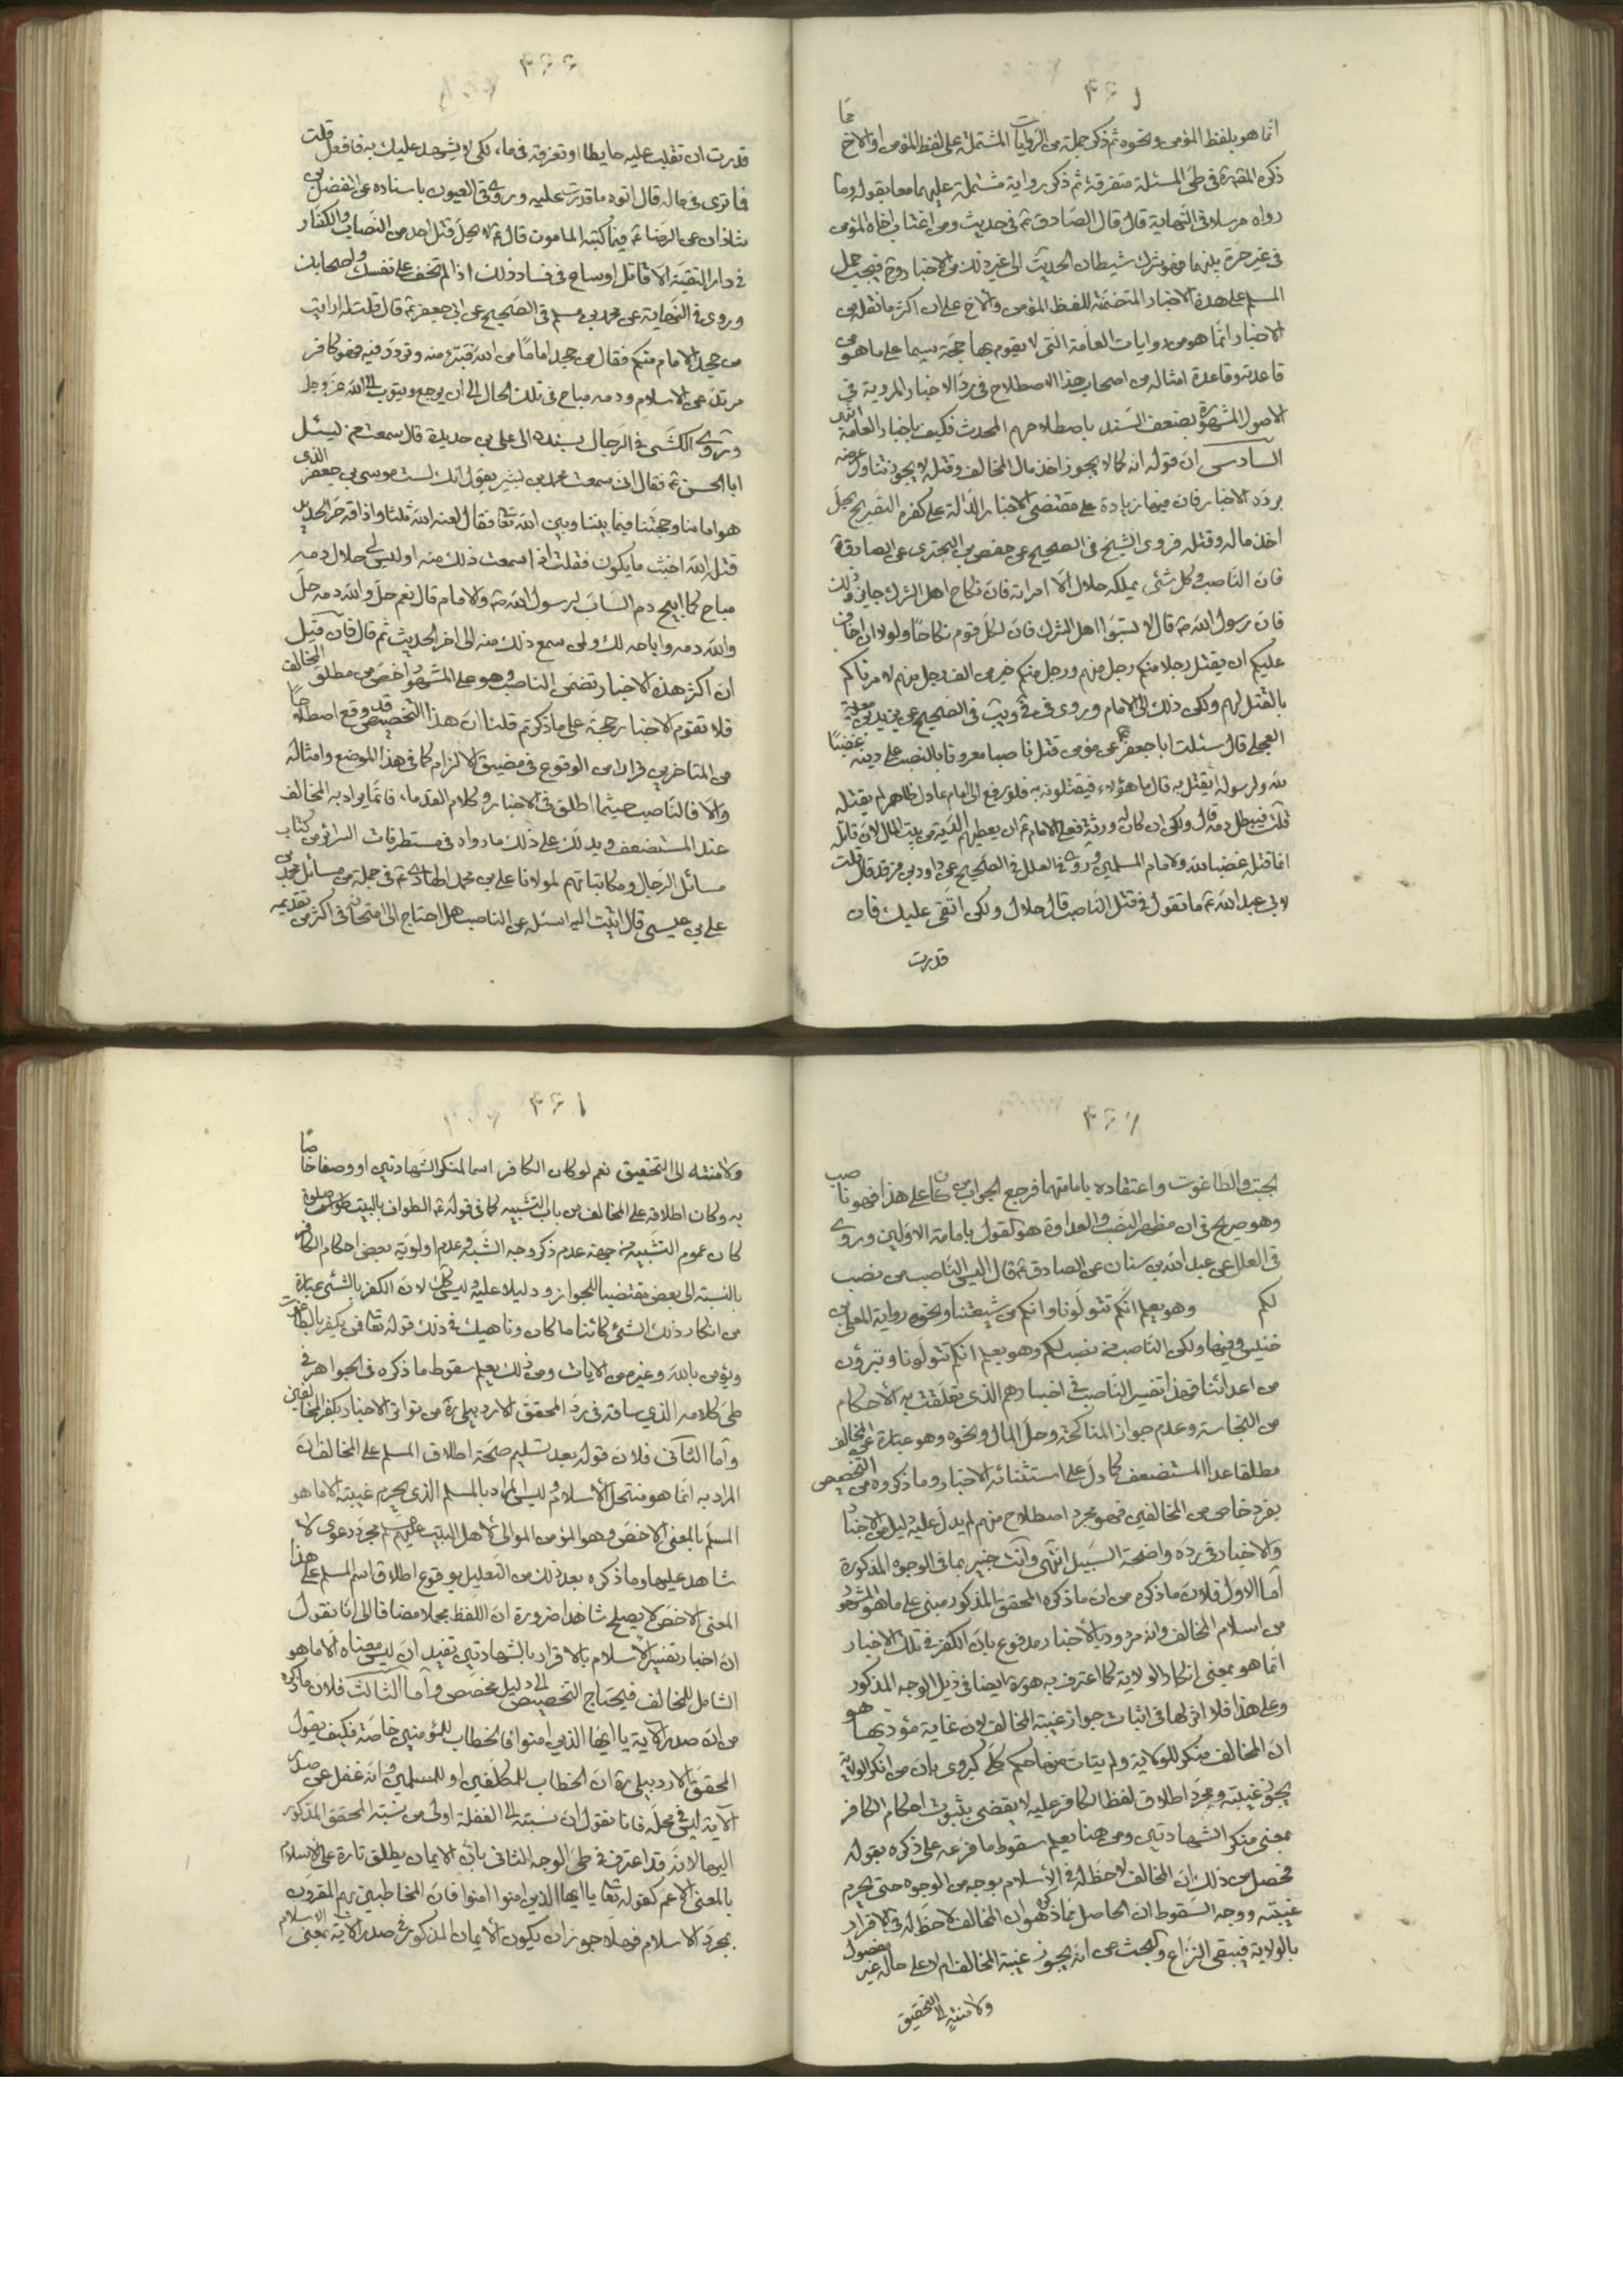 انما هو بلفظ المؤمن ونحوه ثم ذكر جملة من الروايات المشتملة على لفظ المؤمن او الاخ مما
ذكره المقرة في طي المسئلة متفرقة ثم ذكر رواية مشتملة عليهما معا بقوله وما
رواه مرسلا في النهاية قال قال الصادق ع في حديث ومن اغتاب اخاه المؤمن
في غير ترة بينهما فهو شرك شيطان الحديث الى غير ذلك من الاخبار وح فيجب حمل
المسلم على هذه الاخبار المتضمنة للفظ المؤمن والاخ على ان اكثر ما نقله من
الاخبار انما هو من روايات العامة التي لا يقوم بها حجة سيما على ما هو من
قاعدته وقاعدة امثاله من اصحاب هذا الاصطلاح في رد الاخبار المروية في
الاصول المشهورة بضعف السند باصطلاحهم المحدث فكيف باخبار العامة
السادس ان قوله انه كما لا يجوز اخذ مال المخالف وقتله لا يجوز تناول عرضه
يرده الاخبار فان فيها زيادة على مقتضى الاخبار الدالة على كفره التصريح بحل
اخذ ماله وقتله فروى الشيخ في الصحيح عن حفص بن البختري عن الصادق ع
فان الناصب وكل شئ يملكه حلال الا امراته فان نكاح اهل الشرك جايز وذلك
فان رسول الله ص قال لا تسبوا اهل الشرك فان لكل قوم نكاحا ولولا ان اخاف
عليكم ان يقتل رجلا منكم رجل منهم ورجل منكم خير من الف رجل منهم لامرناكم
بالقتل لهم ولكن ذلك الى الامام وروى في في ويب في الصحيح عن بريد بن معوية
العجلي قال سئلت ابا جعفر ع عن مؤمن قتل ناصبا معروفا بالنصب على دينه غضبا
لله ولرسوله ايقتل به قال اما هؤلاء فيقتلونه به فلو رفع الى امام عادل ظاهر لم يقتله
قلت فيبطل دمه قال ولكن ان كان له ورثة فعلى الامام ع ان يعطيهم الدية من بيت المال لان قاتله
انما قتله غضبا لله ولامام المسلمين وروى في العلل في الصحيح عن داود بن فرقد قال قلت
لابي عبد الله ع ما تقول في قتل الناصب قال حلال ولكن اتقى عليك فان
قدرت
قدرت ان تقلب عليه حايطا او تغرقه في ماء لكي لا يشهد عليك به فافعل قلت
فما ترى في ماله قال اتوه ما قدرت عليه وروى في العيون باسناده عن الفضل بن
شاذان عن الرضا ع فيما كتبه المامون قال ع لا يحل قتل احد من النصاب والكفار
في دار التقية الا قاتل او ساع في فساد ذلك اذا لم تخف على نفسك واصحابك
وروى في النهاية عن محمد بن مسلم في الصحيح عن ابي جعفر ع قال قلت له ارايت
من جحد الامام منكم فقال من جحد اماما من الله فتبرء منه ومن دينه فهو كافر
مرتد عن الاسلام ودمه مباح في تلك الحال الى ان يرجع ويتوب الى الله عز وجل
وروى الكشى في الرجال بسنده الى علي بن حديد قال سمعت من يسئل
ابا الحسن ع فقال اني سمعت محمد بن بشير يقول انك لست موسى بن جعفر الذي
هو امامنا وحجتنا فيما بيننا وبين الله تعا فقال لعنه الله ثلثا واذاقه حر الحديد
قتله الله اخبث ما يكون فقلت اذا سمعت ذلك منه اوليس لي حلال دمه
مباح كما ابيح دم الساب لرسول الله ص والامام قال نعم حل والله دمه حل
والله دمه واباحه لك ولمن سمع ذلك منه الى اخر الحديث ثم قال فان قيل
ان اكثر هذه الاخبار تضمن الناصب وهو على المشهور اخص من مطلق المخالف
فلا تقوم الاخبار حجة على ما ذكرتم قلنا ان هذا التخصيص قد وقع اصطلاحا
من المتاخرين فرارا من الوقوع في مضيق الالزام كما في هذا الموضع وامثاله
والا فالناصب حيثما اطلق في الاخبار وكلام القدماء فانما يراد به المخالف
عند المستضعف ويدلك على ذلك ما رواه في مستطرفات السرائر من كتاب
مسائل الرجال ومكاتباتهم لمولانا علي بن محمد الهادي ع في جملة من مسائل محمد بن
علي بن عيسى قال كتبت اليه اسئله عن الناصب هل احتاج الى امتحانه في اكثر من تقديمه
الجبت والطاغوت واعتقاده بامامتهما فرجع الجواب من كان على هذا فهو ناصب
وهو صريح في ان مظهر النصب والعداوة هو القول بامامة الاولين وروى
في العلل عن عبد الله بن سنان عن الصادق ع قال ليس الناصب من نصب
لكم وهو يعلم انكم تتولونا وانكم من شيعتنا ونحوه رواية المعلى بن
خنيس وفيها ولكن الناصب من نصب لكم وهو يعلم انكم تتولونا وتبرؤن
من اعدائنا فهذا تفسير الناصب في اخبارهم الذي تعلقت به الاحكام
من النجاسة وعدم جواز المناكحة وحل المال ونحوه وهو عبارة عن المخالف
مطلقا عدا المستضعف كما دل على استثنائه الاخبار وما ذكروه من التخصيص
بفرد خاص من المخالفين فهو مجرد اصطلاح منهم لم يدل عليه دليل من الاخبار
والاخبار في رده واضحة السبيل انتهى وانت خبير بما في الوجوه المذكورة
اما الاول فلان ما ذكره من ان ما ذكره المحقق المذكور مبني على ما هو المشهور
من اسلام المخالف وانه مردود بالاخبار مدفوع بان الكفر في تلك الاخبار
انما هو بمعنى انكار الولاية كما اعترف به هو ره ايضا في ذيل الوجه المذكور
وعلى هذا فلا اثر لها في اثبات جواز غيبة المخالف لان غاية مؤديها هو
ان المخالف منكر للولاية ولم يتات منها حكم كلي كبروى بان من انكر الولاية
يجوز غيبته ومجرد اطلاق لفظ الكافر عليه لا يقضى بثبوت احكام الكافر
بمعنى منكر الشهادتين ومن هنا يعلم سقوط ما فرعه على ذكره بقوله
فحصل من ذلك ان المخالف لا حظ له في الاسلام بوجه من الوجوه حتى يحرم
غيبته ووجه السقوط ان الحاصل مما ذكره هو ان المخالف لا حظ له في الاقرار
بالولاية فيبقى النزاع والبحث عن انه يجوز غيبة المخالف ام لا على حاله غير مفصول
ولا منته الى التحقيق
ولا منته الى التحقيق نعم لو كان الكافر اسما لمنكر الشهادتين او وصفا خاصا
به وكان اطلاقه على المخالف من باب التشبيه كما في قوله ع الطواف بالبيت صلوة
كان عموم التشبيه من جهة عدم ذكر وجه الشبه وعدم اولوية بعض احكام الكافر
بالنسبة الى بعض مقتضيا للجواز ودليلا عليه وليس كك لان الكفر بالشئ عبارة
من انكار ذلك الشئ كائنا ما كان وناهيك في ذلك قوله تعا فمن يكفر بالطاغوت
ويؤمن بالله وغيره من الايات ومن ذلك يعلم سقوط ما ذكره في الجواهر في
طي كلامه الذي ساقه في رد المحقق الاردبيلي ره من تواتر الاخبار بكفر المخالفين
واما الثاني فلان قوله بعد تسليم صحة اطلاق المسلم على المخالف ان
المراد به انما هو منتحل الاسلام وليس المراد بالمسلم الذي يحرم غيبته الا ما هو
المسلم بالمعنى الاخص وهو المؤمن الموالى لاهل البيت عليهم السلم مجرد دعوى لا
شاهد عليها وما ذكره بعد ذلك من التعليل بوقوع اطلاق اسم المسلم على هذا
المعنى الاخص لا يصلح شاهدا ضرورة ان اللفظ مجملا مضافا الى انا نقول
ان اخبار تفسير الاسلام بالاقرار بالشهادتين تفيد ان ليس معناه الا ما هو
الشامل للمخالف فيحتاج التخصيص الى دليل مخصص واما الثالث فلان ما ذكره
من ان صدر الاية يا ايها الذين امنوا فالخطاب للمؤمنين خاصة فكيف يقول
المحقق الاردبيلي ره ان الخطاب للمكلفين او للمسلمين وانه غفل عن صدر
الاية ليس في محله فانا نقول ان نسبته الى الغفلة اولى من نسبة المحقق المذكور
اليها لانه قد اعترف في طي الوجه الثاني بان الايمان يطلق تارة على الاسلام
بالمعنى الاعم كقوله تعا يا ايها الذين امنوا امنوا فان المخاطبين بهم المقرون
بمجرد الاسلام فهلا جوز ان يكون الايمان المذكور في صدر الاية بمعنى الاسلام